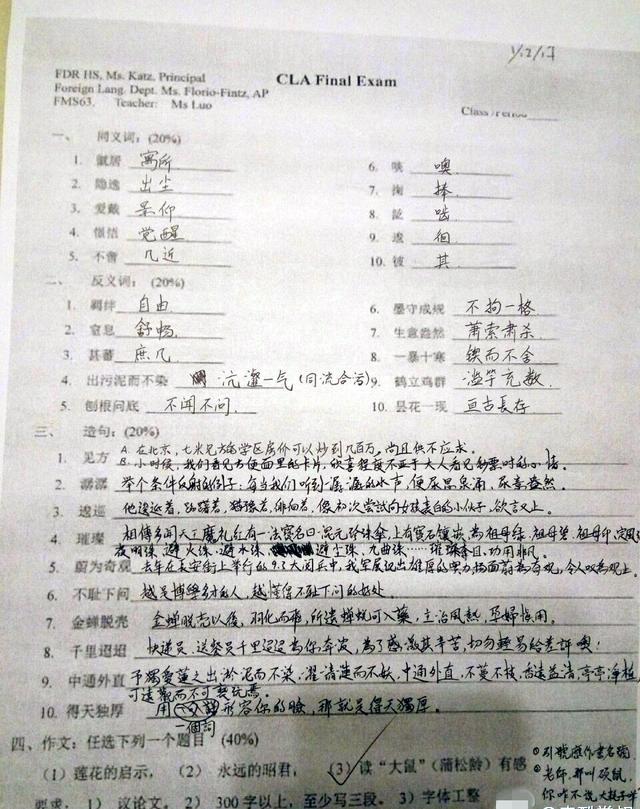 1/12/17
FDR HS, Ms. Katz, Principal
CLA Final Exam
Foreign Lang. Dept. Ms. Florio-Fintz, AP
FMS63. Teacher: Ms Luo
Class /Period
一、 同义词：(20%)
1. 僦居 寓所
2. 隐逸 出尘
3. 爱戴 景仰
4. 憬悟 觉醒
5. 不啻 几近
6. 咦 噢
7. 掬 捧
8. 訾 咄
9. 逡 徊
10. 彼 其
二、 反义词：(20%)
1. 羁绊 自由
2. 窒息 舒畅
3. 甚蕃 庶几
4. 出污泥而不染 沆瀣一气(同流合污)
5. 刨根问底 不闻不问.
6. 墨守成规 不拘一格
7. 生意盎然 萧索肃杀.
8. 一暴十寒 锲而不舍
9. 鹤立鸡群 滥竽充数.
10. 昙花一现 亘古长存
三、 造句：(20%)
1. 见方 A. 在北京，七米见方的学区房价可以炒到几百万，尚且供不应求。
B. 小时候，我们看见方便面里的卡片，欣喜程度不亚于大人看见钞票时的心情。
2. 潺潺 举个条件反射的例子，每当我们听到潺潺的水声，便尿思泉涌，尿意盎然。
3. 逡巡 他逡巡着，踌躇着，犹豫着，徘徊着，像初次尝试向女孩表白的小伙子，欲言又止。
4. 璀璨 相傅多闻天王魔礼红有一法宝名曰：混元珍珠伞，上有宝石镶嵌，为祖母绿，祖母碧，祖母印，定风珠
夜明珠，避火珠，避水珠，避尘珠，九曲珠……璀璨夺目，功用非凡。
5. 蔚为奇观 去年在天安门街上举行的9.3大阅兵中，我军展现出雄厚的实力，场面蔚为奇观，令人叹为观止。
6. 不耻下问 越是博學多才的人，越懂得不耻下问的好处。
7. 金蝉脱壳 金蝉脱壳以後，羽化而飛，所遗蝉蜕可入藥，主治風熱，孕婦慎用。
8. 千里迢迢 快递员、送餐员千里迢迢为你奔波，為了感激其辛苦，切勿輕易給差評哦！
9. 中通外直 予獨爱蓮之出淤泥而不染，濯清漣而不妖，中通外直，不蔓不枝，香遠益清，亭亭净植，
可遠觀而不可亵玩焉。
10. 得天独厚 用一個詞形容你的臉，那就是得天獨厚。
四、作文：任选下列一个题目 (40%)
(1) 莲花的启示， (2) 永远的昭君， (3) 读“大鼠”(蒲松龄) 有感
要求：1) 议论文。2) 300字以上，至少写三段。3) 字体工整
①引號應作書名號
②老师，那叫硕鼠，
你咋不说大耗子